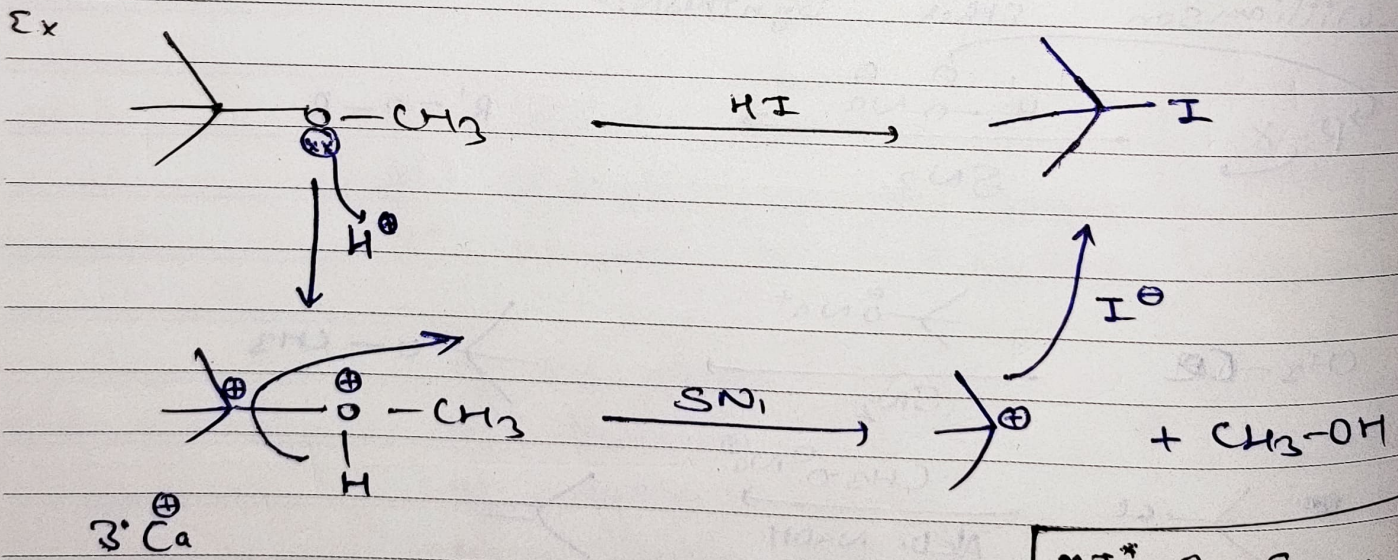 Ex
O – CH3 HI I
xx
H⊕
I⊖
⊕ ⊕
O – CH3 SN1 ⊕ + CH3-OH
H
3° C⊕a